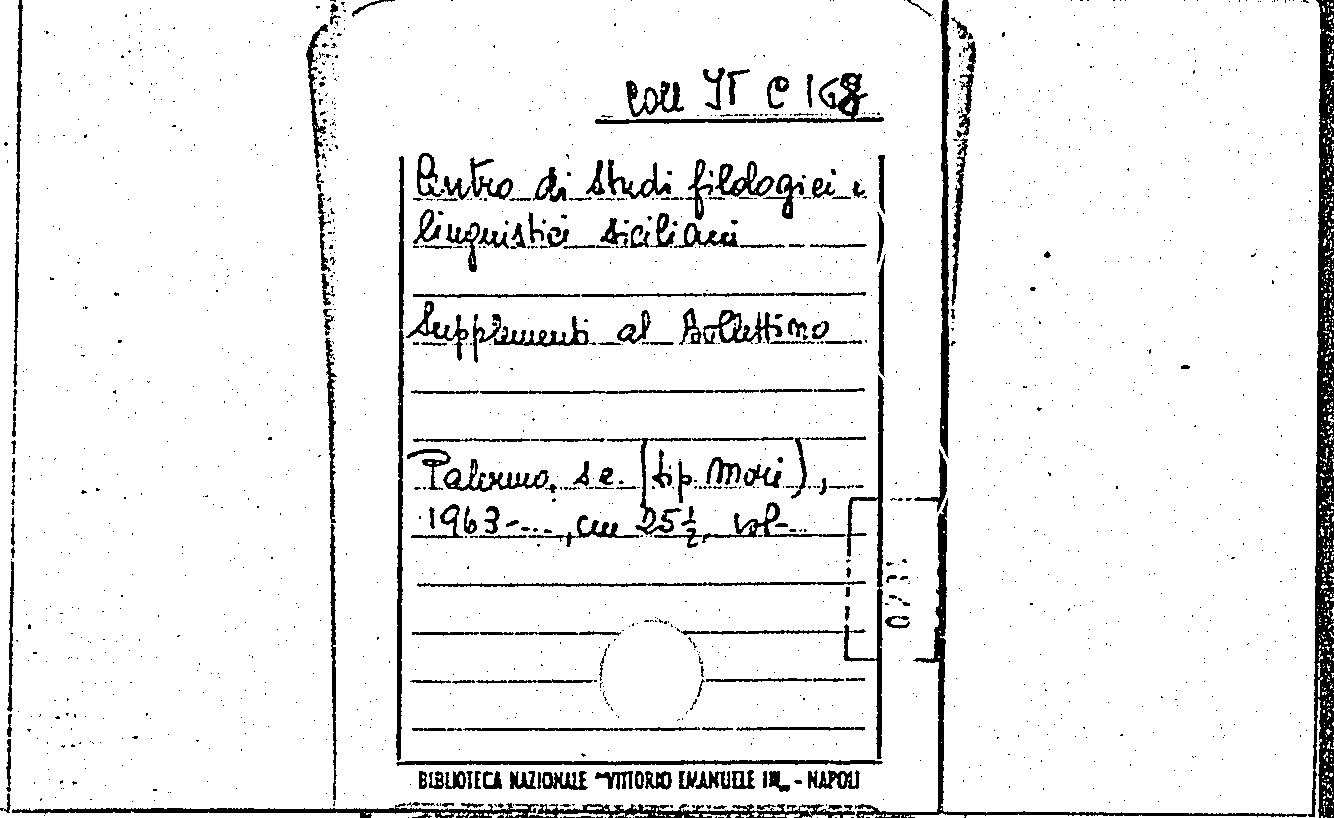 Coll IT C 168
Centro di Studi filologici e
linguistici siciliani
Supplementi al Bollettino
Palermo, s.e. (tip. Mori),
1963-...., cm 25½, vol-..
BIBLIOTECA NAZIONALE "VITTORIO EMANUELE III" - NAPOLI